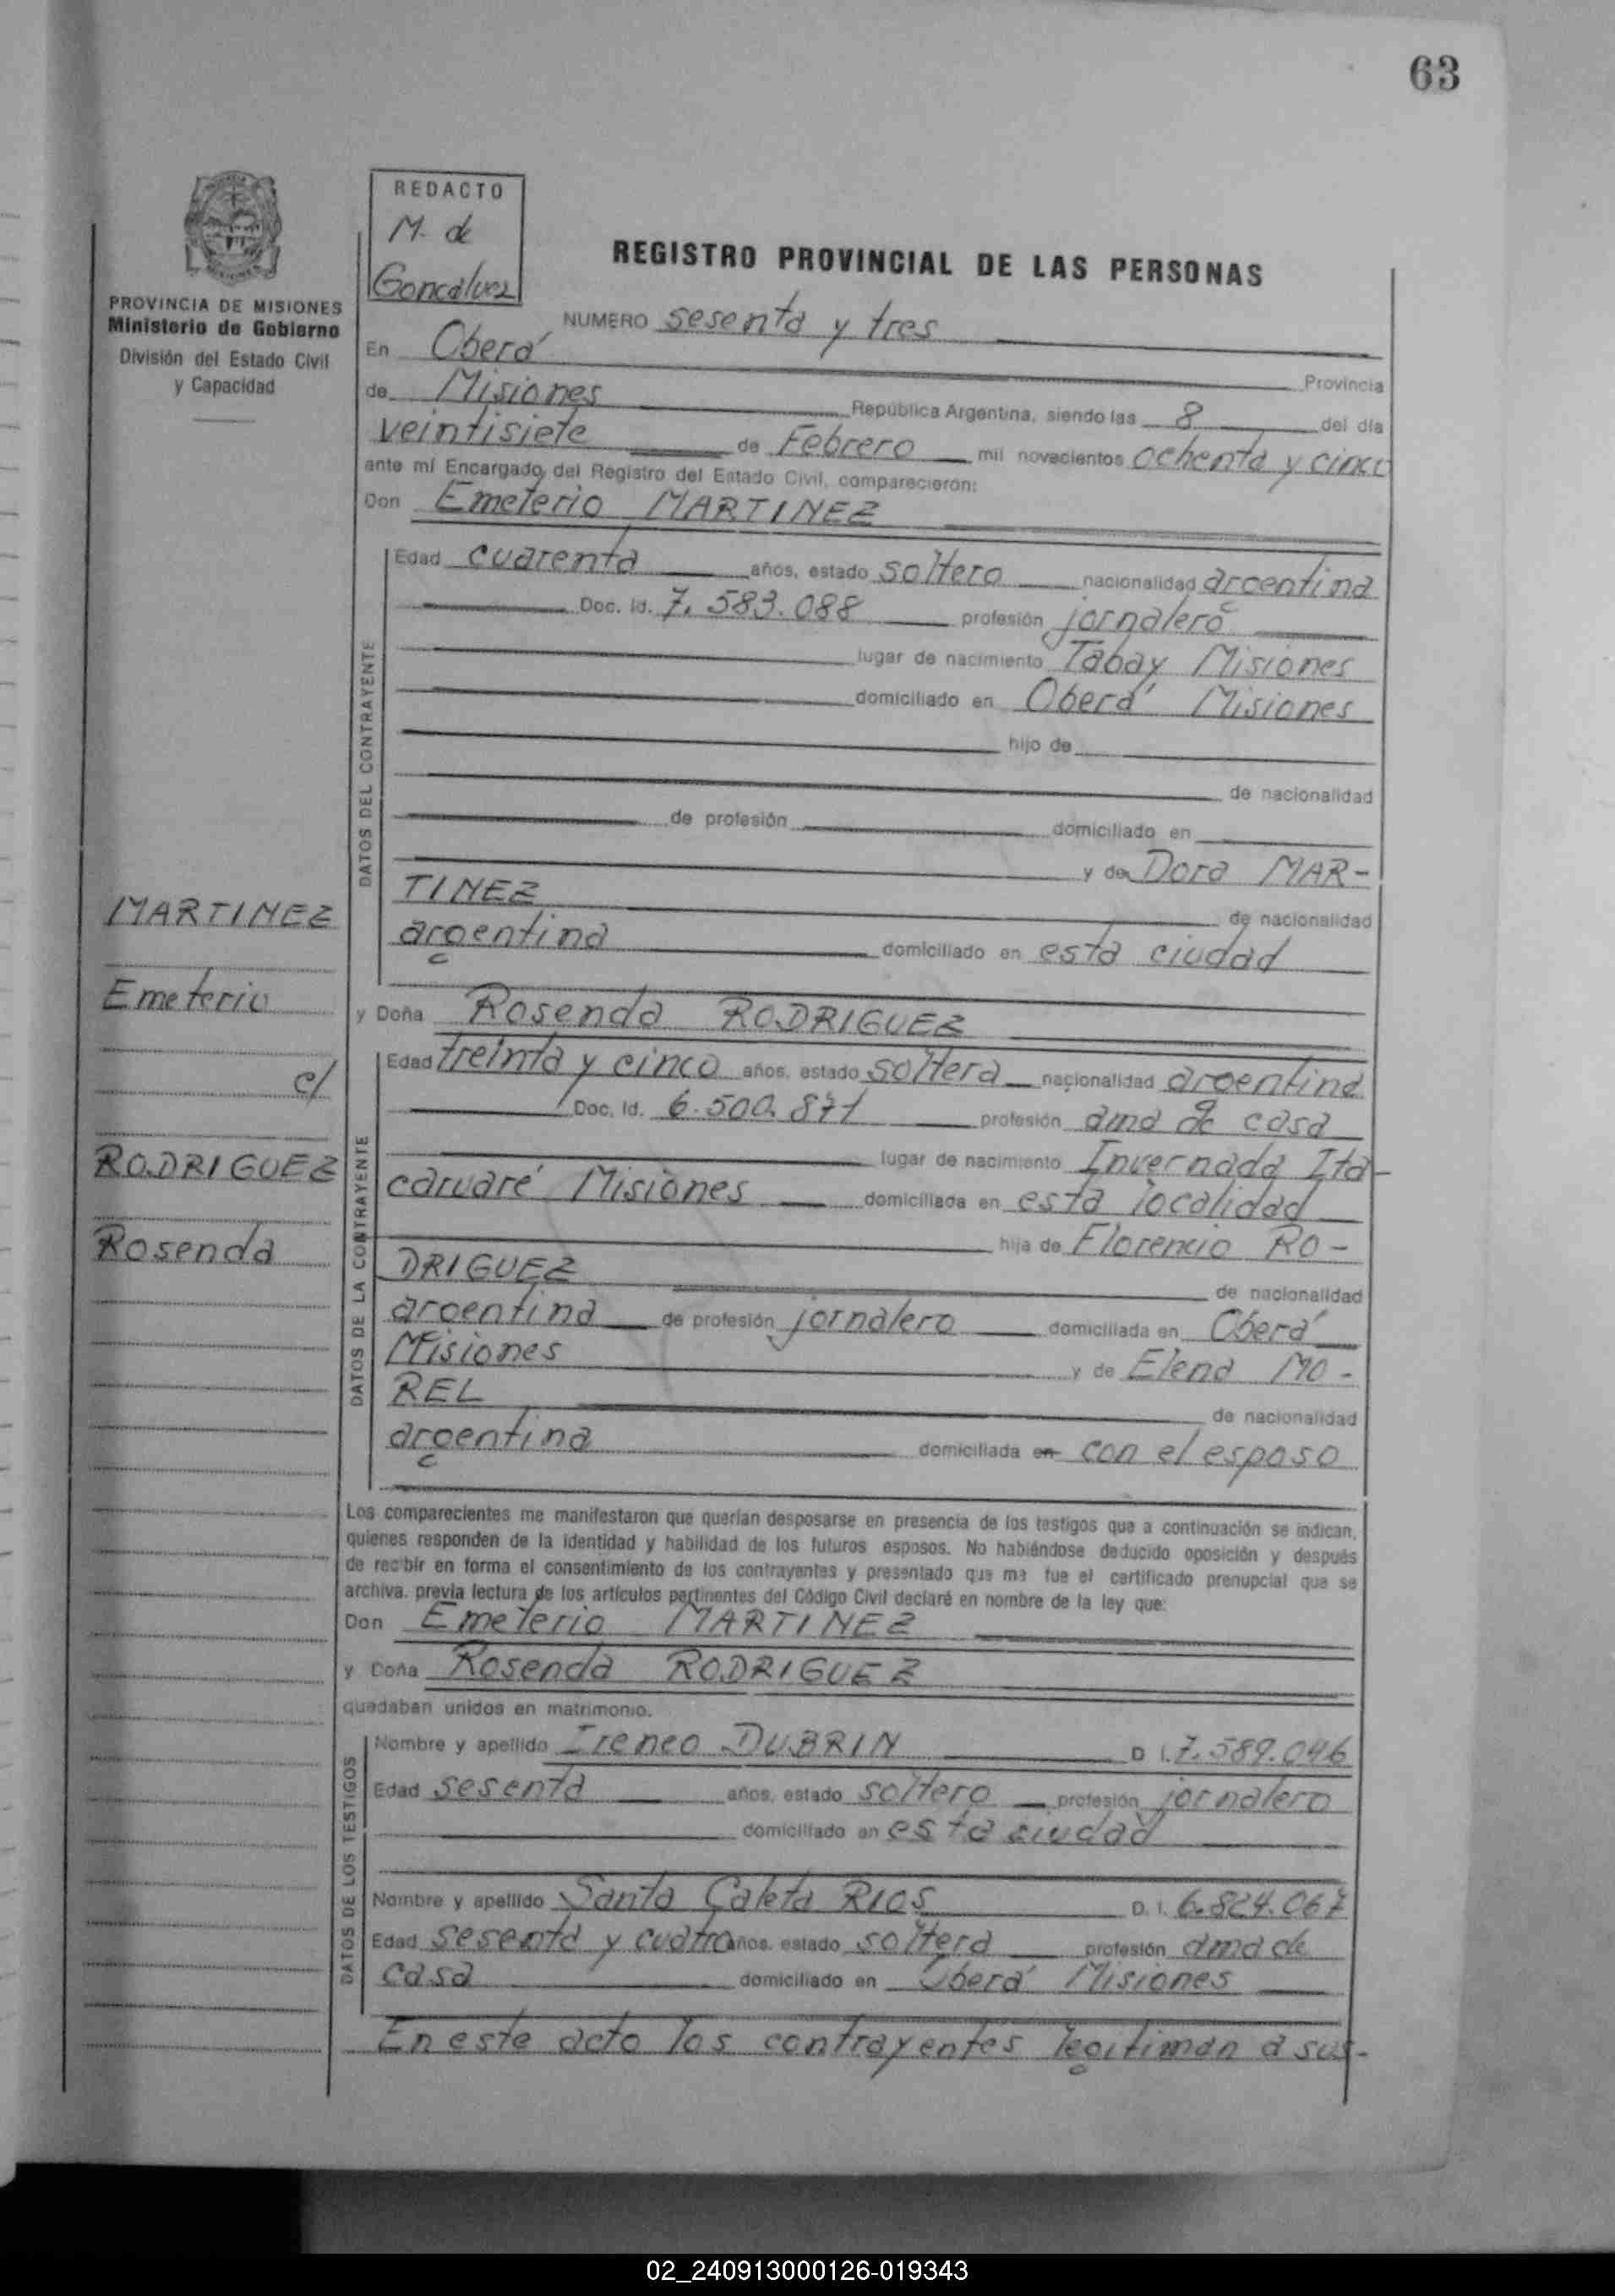 63
REDACTO
M. de
Goncalvez
REGISTRO PROVINCIAL DE LAS PERSONAS
PROVINCIA DE MISIONES
Ministerio de Gobierno
División del Estado Civil
y Capacidad
NUMERO sesenta y tres
En Oberá Provincia
de Misiones República Argentina, siendo las 8 del día
veintisiete de Febrero mil novecientos ochenta y cinco
ante mí Encargado del Registro del Estado Civil, comparecieron:
Don Emeterio MARTINEZ
DATOS DEL CONTRAYENTE
Edad cuarenta años, estado soltero nacionalidad argentina
Doc. Id. 7.583.088 profesión jornalero
lugar de nacimiento Tabay Misiones
domiciliado en Oberá Misiones
hijo de
de nacionalidad
de profesión domiciliado en
y de Dora MAR-
TINEZ de nacionalidad
argentina domiciliado en esta ciudad
MARTINEZ
Emeterio
c/
RODRIGUEZ
Rosenda
y Doña Rosenda RODRIGUEZ
DATOS DE LA CONTRAYENTE
Edad treinta y cinco años, estado soltera nacionalidad argentina
Doc. Id. 6.500.871 profesión ama de casa
lugar de nacimiento Invernada Ita-
caruaré Misiones domiciliada en esta localidad
hija de Florencio RO-
DRIGUEZ de nacionalidad
argentina de profesión jornalero domiciliada en Oberá
Misiones y de Elena MO-
REL de nacionalidad
argentina domiciliada en con el esposo
Los comparecientes me manifestaron que querían desposarse en presencia de los testigos que a continuación se indican,
quienes responden de la identidad y habilidad de los futuros esposos. No habiéndose deducido oposición y después
de recibir en forma el consentimiento de los contrayentes y presentado que me fue el certificado prenupcial que se
archiva. previa lectura de los artículos pertinentes del Código Civil declaré en nombre de la ley que:
Don Emeterio MARTINEZ
y Doña Rosenda RODRIGUEZ
quedaban unidos en matrimonio.
DATOS DE LOS TESTIGOS
Nombre y apellido Ireneo DUBRIN D. I. 7.589.046
Edad sesenta años, estado soltero profesión jornalero
domiciliado en esta ciudad
Nombre y apellido Santa Caleta RIOS D. I. 6.824.067
Edad sesenta y cuatro años, estado soltera profesión ama de
casa domiciliado en Oberá Misiones
En este acto los contrayentes legitiman a sus-
02_240913000126-019343